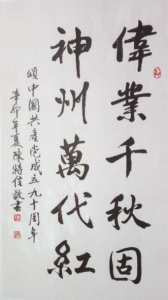 偉業千秋固
神州萬代紅
頌中國共產党成立九十周年
辛卯年夏陳特佳敬書